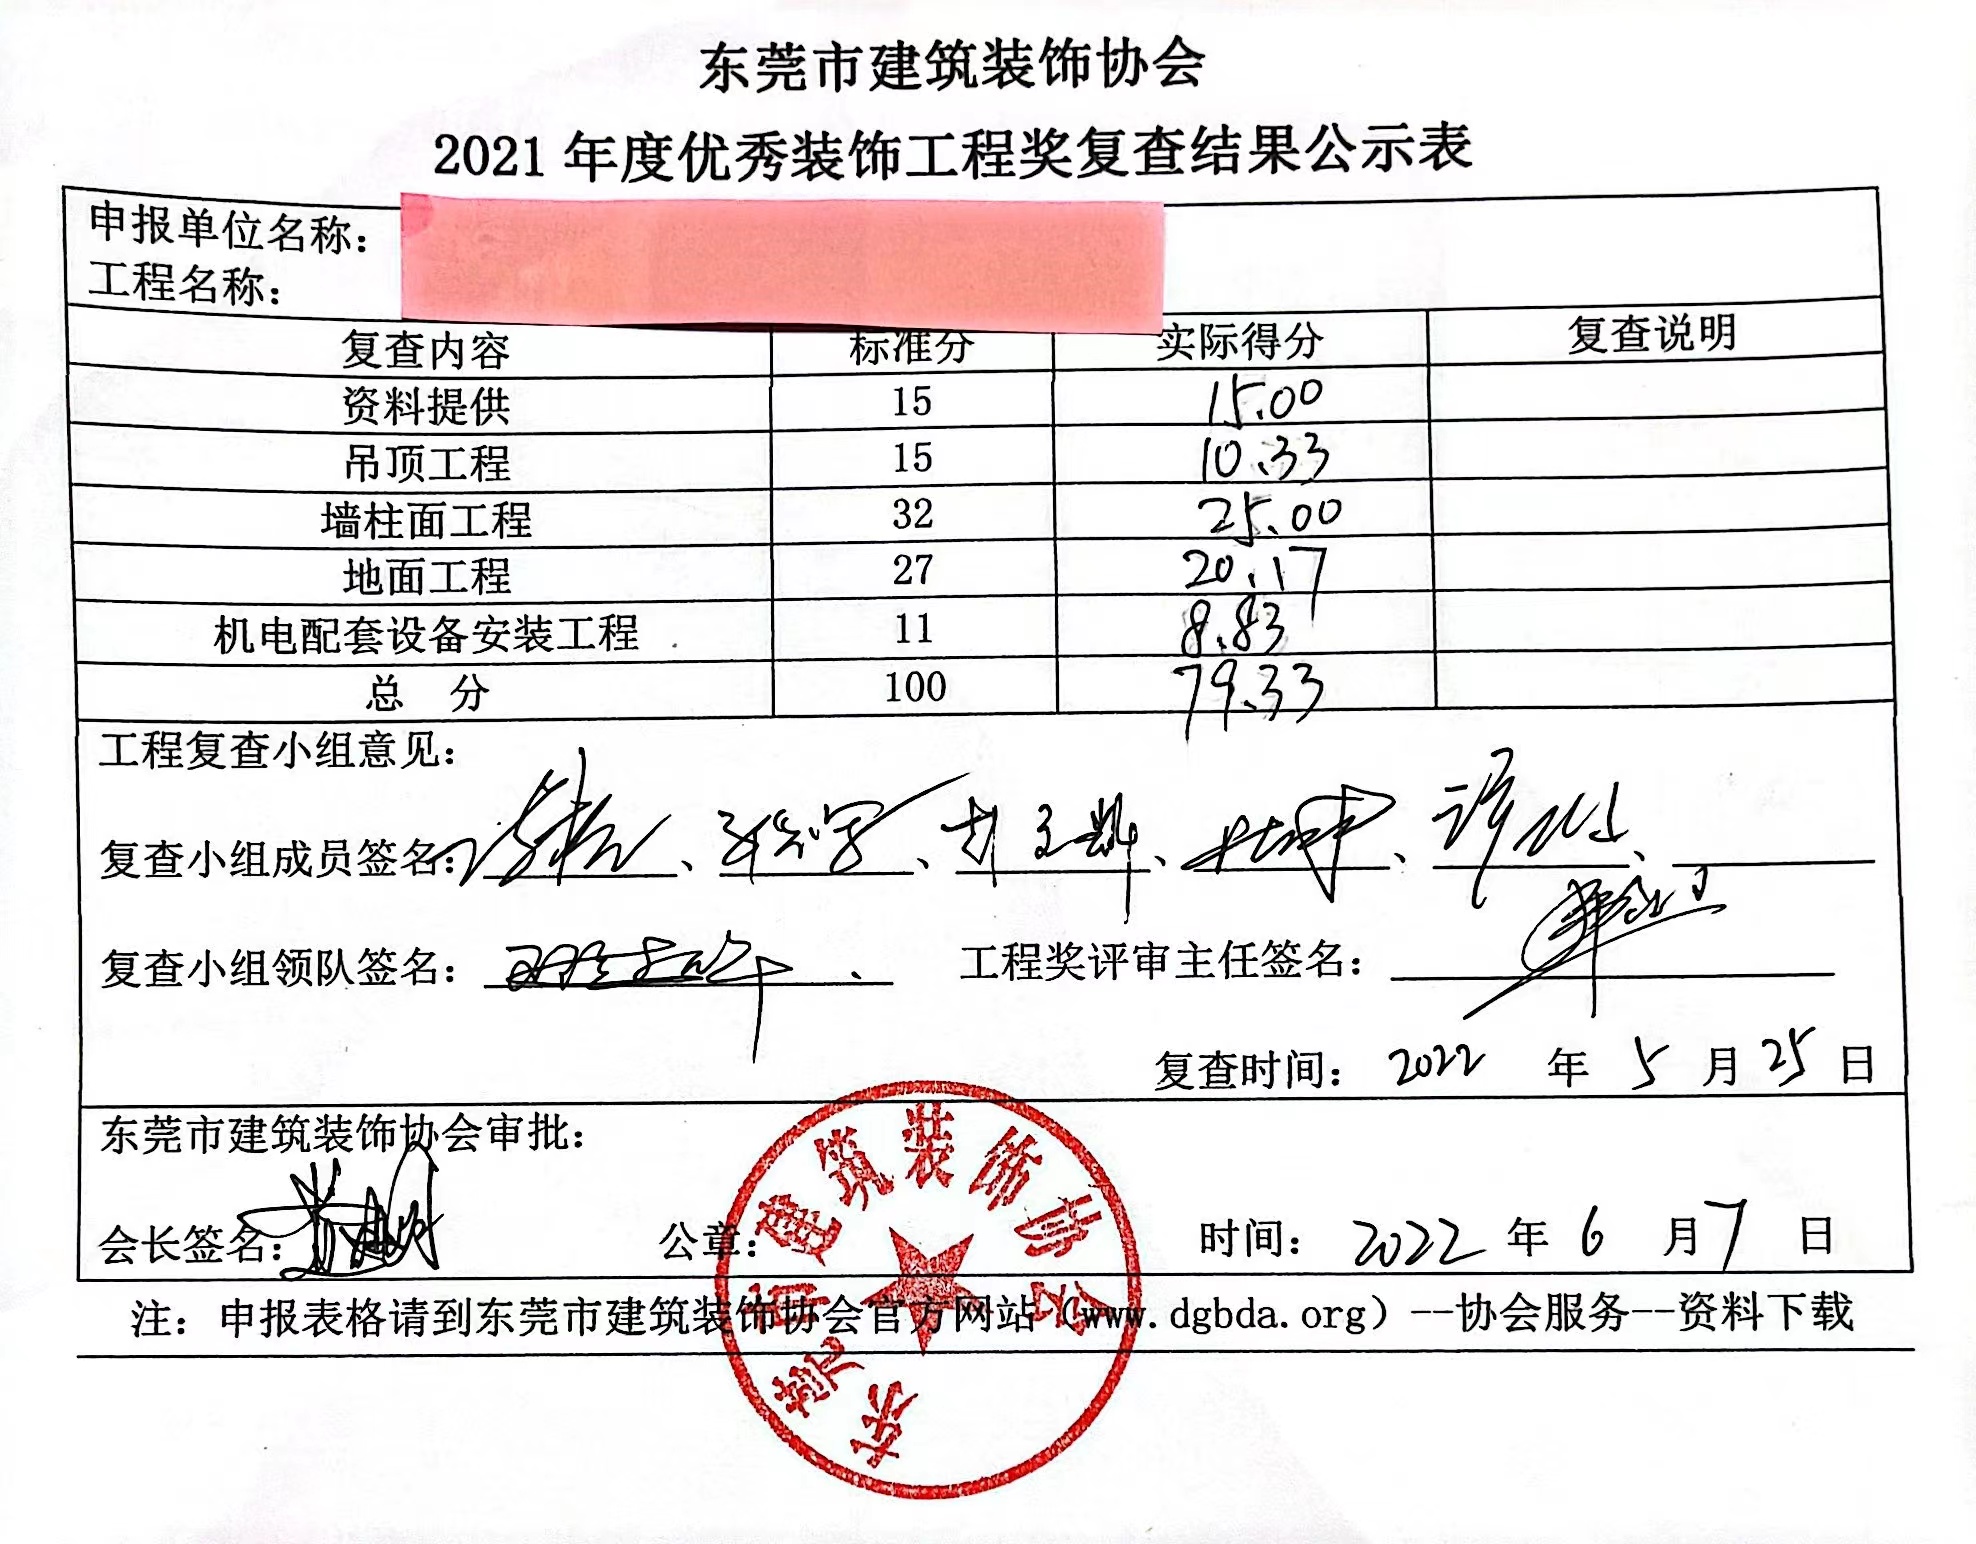 东莞市建筑装饰协会
2021 年度优秀装饰工程奖复查结果公示表
申报单位名称：
工程名称：
复查内容 标准分 实际得分 复查说明
资料提供 15 15.00
吊顶工程 15 10.33
墙柱面工程 32 25.00
地面工程 27 20.17
机电配套设备安装工程 11 8.83
总 分 100 79.33
工程复查小组意见：
复查小组成员签名：、、、、、
复查小组领队签名： 工程奖评审主任签名：
复查时间： 2022 年 5 月 25 日
东莞市建筑装饰协会审批：
会长签名： 公章： 时间： 2022 年 6 月 7 日
注：申报表格请到东莞市建筑装饰协会官方网站（www.dgbda.org）--协会服务--资料下载
东莞市建筑装饰协会